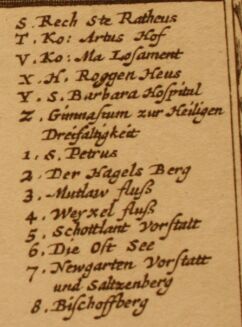 S. Rech Ste Ratheus
T. Ko: Artus Hof
V. Ko: Ma Losament
X. H. Roggen Heus
Y. S. Barbara Hospitul
Z. Gimnasium zur Heiligen
Dreifaltigkeit
1. S. Petrus
2. Der Hagels Berg
3. Mutlaw fluß
4. Weyxel fluß
5. Schottlant Vorstatt
6. Die Ost See
7. Newgarten Vorstatt
und Saltzenberg
8. Bischoffberg